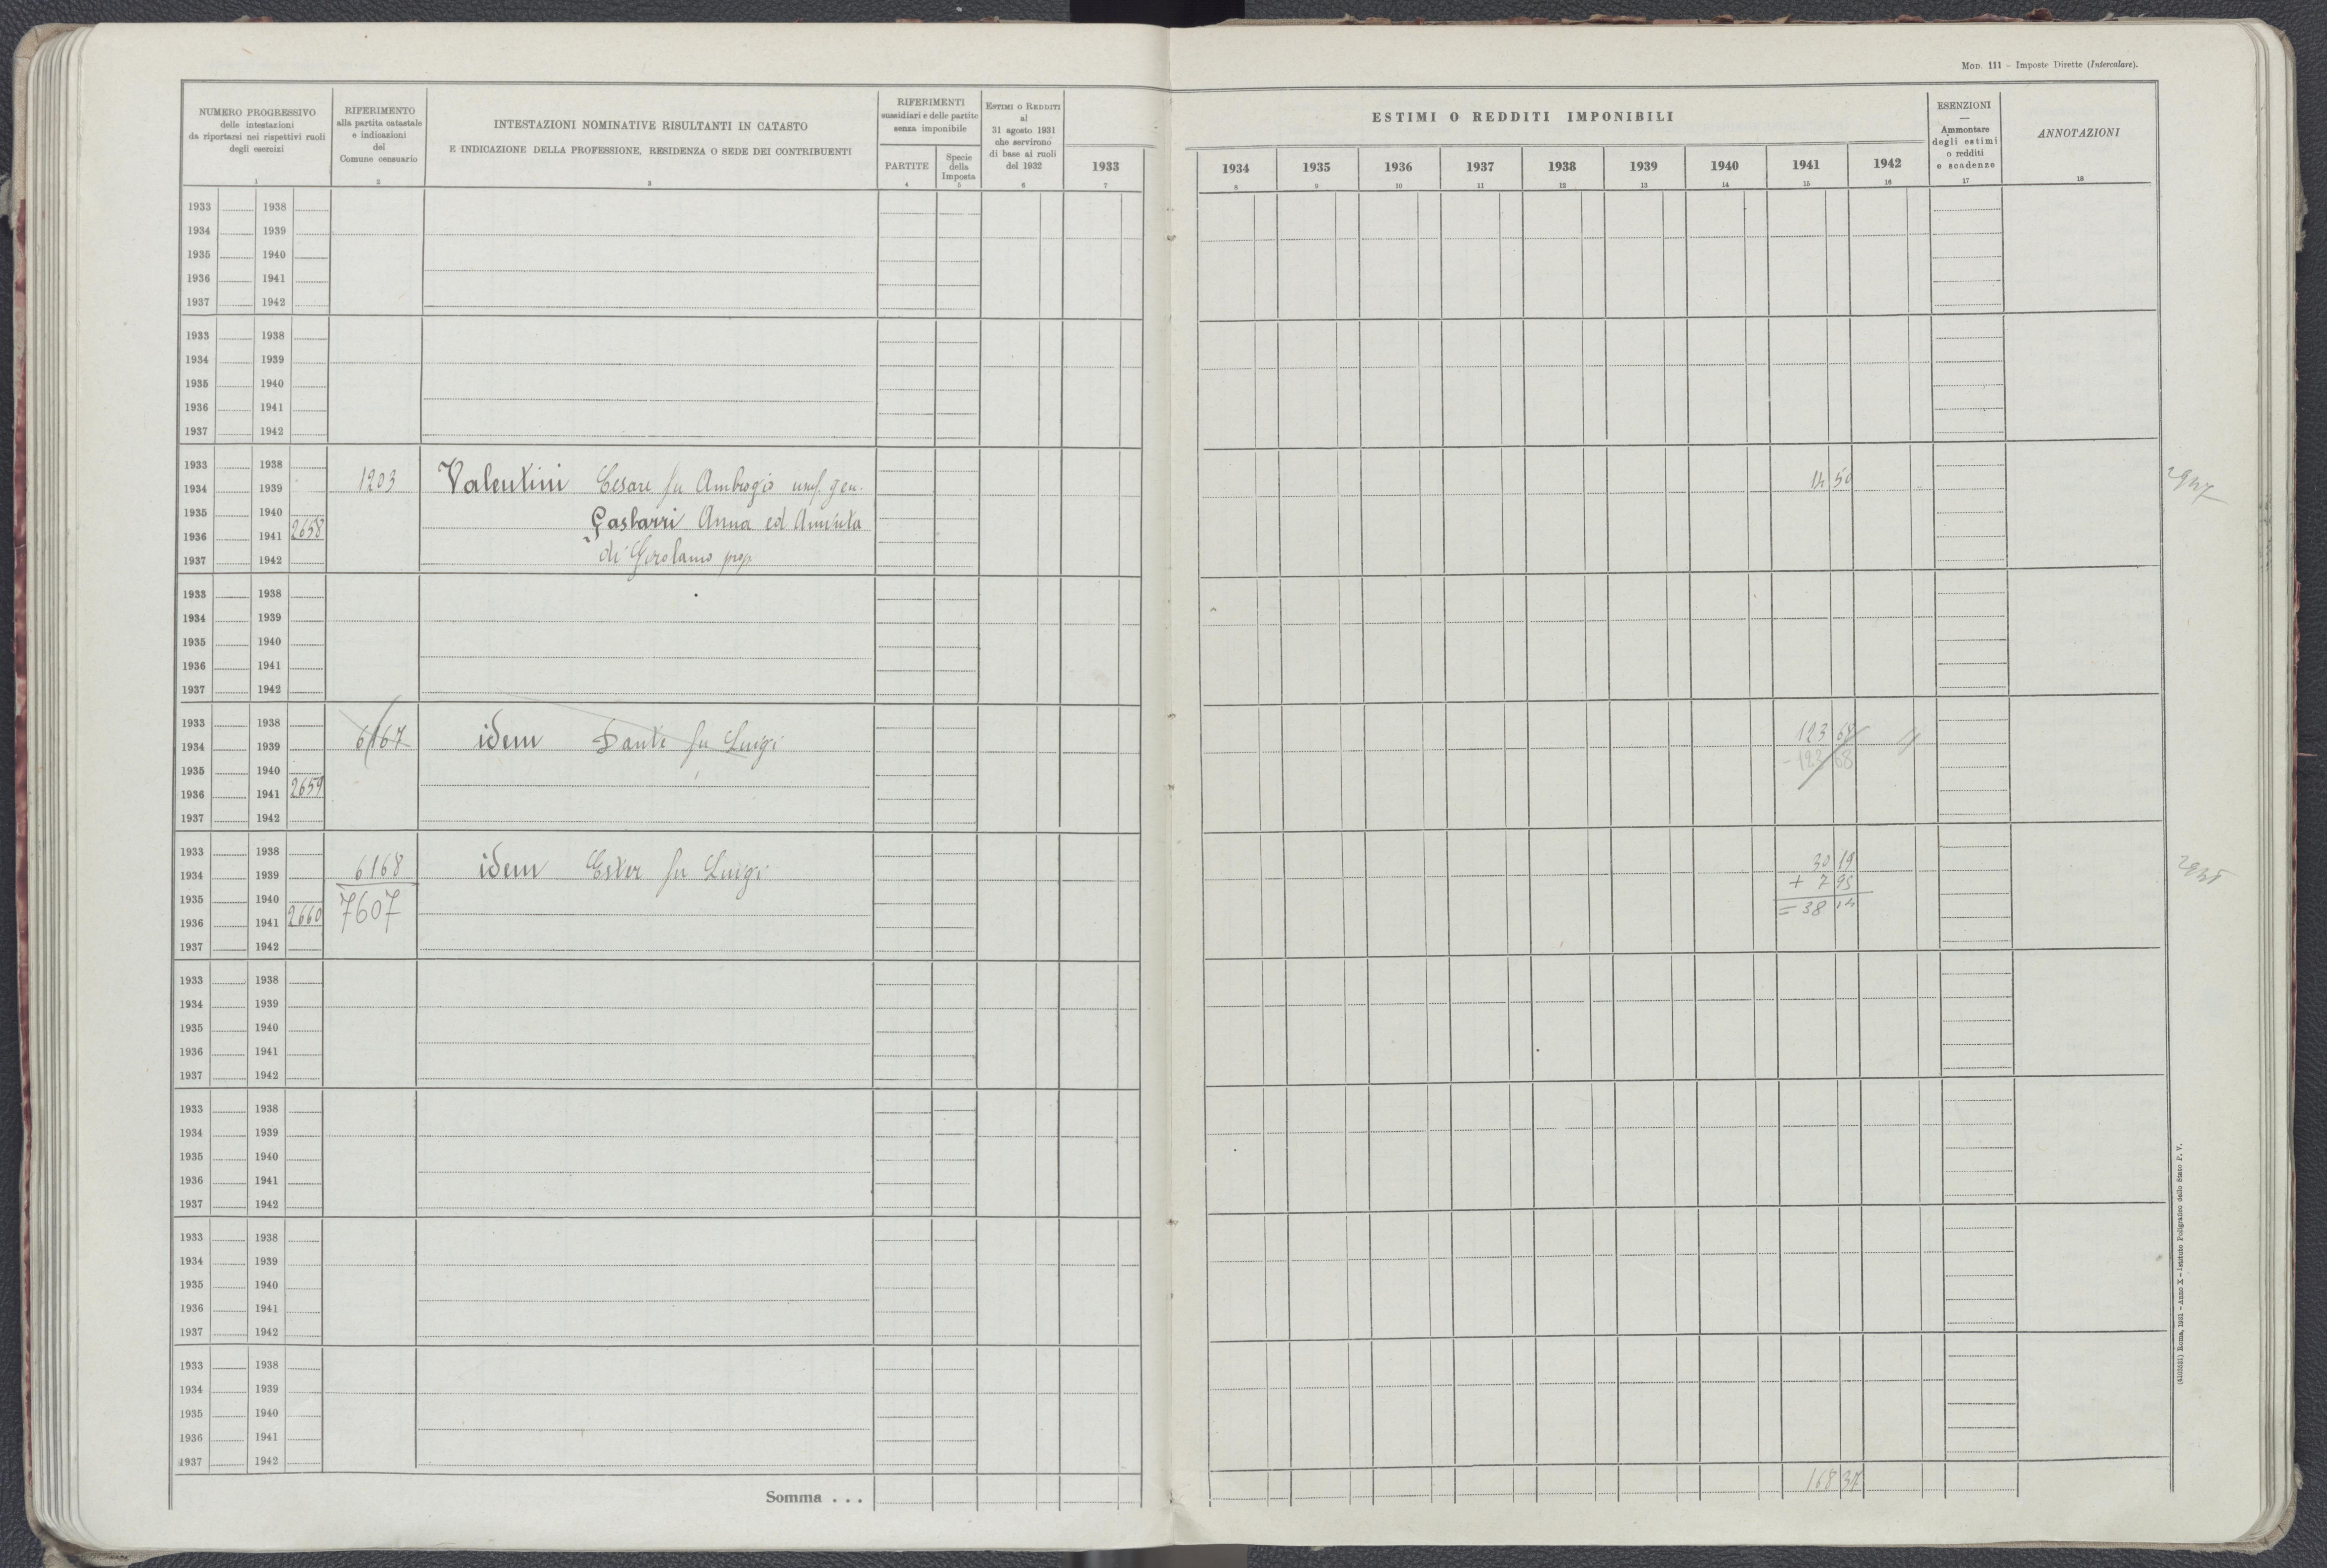 Mod. 111 - Imposte Dirette (Intercalare).
NUMERO PROGRESSIVO
delle intestazioni
da riportarsi nei rispettivi ruoli
degli esercizi
1
RIFERIMENTO
alla partita catastale
e indicazioni
del
Comune censuario
2
INTESTAZIONI NOMINATIVE RISULTANTI IN CATASTO
E INDICAZIONE DELLA PROFESSIONE, RESIDENZA O SEDE DEI CONTRIBUENTI
3
RIFERIMENTI
sussidiari e delle partite
senza imponibile
PARTITE
4
Specie
della
Imposta
5
Estimi o Redditi
al
31 agosto 1931
che servirono
di base ai ruoli
del 1932
6
ESTIMI O REDDITI IMPONIBILI
1933 1934 1935 1936 1937 1938 1939 1940 1941 1942
7 8 9 10 11 12 13 14 15 16
ESENZIONI
—
Ammontare
degli estimi
o redditi
e scadenze
17
ANNOTAZIONI
18
1933 1938
1934 1939
1935 1940
1936 1941
1937 1942
1933 1938
1934 1939
1935 1940
1936 1941
1937 1942
1933 1938
1934 1939 1203 Valentini Cesare fu Ambrogio usuf. gen. 14 50
1935 1940 Gasbarri Anna ed Aminta
1936 1941 2658
1937 1942 di Girolamo prop.
1933 1938
1934 1939
1935 1940
1936 1941
1937 1942
1933 1938
1934 1939 6167 idem Dante fu Luigi 123 68
1935 1940 - 123 68
1936 1941 2659
1937 1942
1933 1938
1934 1939 6168 idem Ester fu Luigi 30 19
1935 1940 + 7 95
1936 1941 2660 7607 = 38 14
1937 1942
1933 1938
1934 1939
1935 1940
1936 1941
1937 1942
1933 1938
1934 1939
1935 1940
1936 1941
1937 1942
1933 1938
1934 1939
1935 1940
1936 1941
1937 1942
1933 1938
1934 1939
1935 1940
1936 1941
1937 1942
Somma . . . 168 37